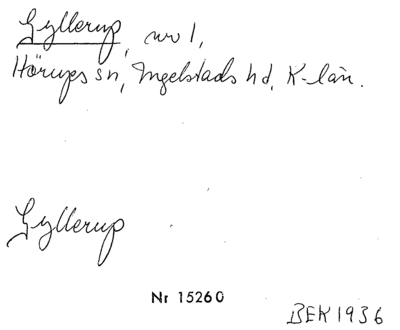 Gyllerup, nr 1,
Hörups sn, Ingelstads hd, K-län.
Gyllerup
Nr 15260
BEK 1936